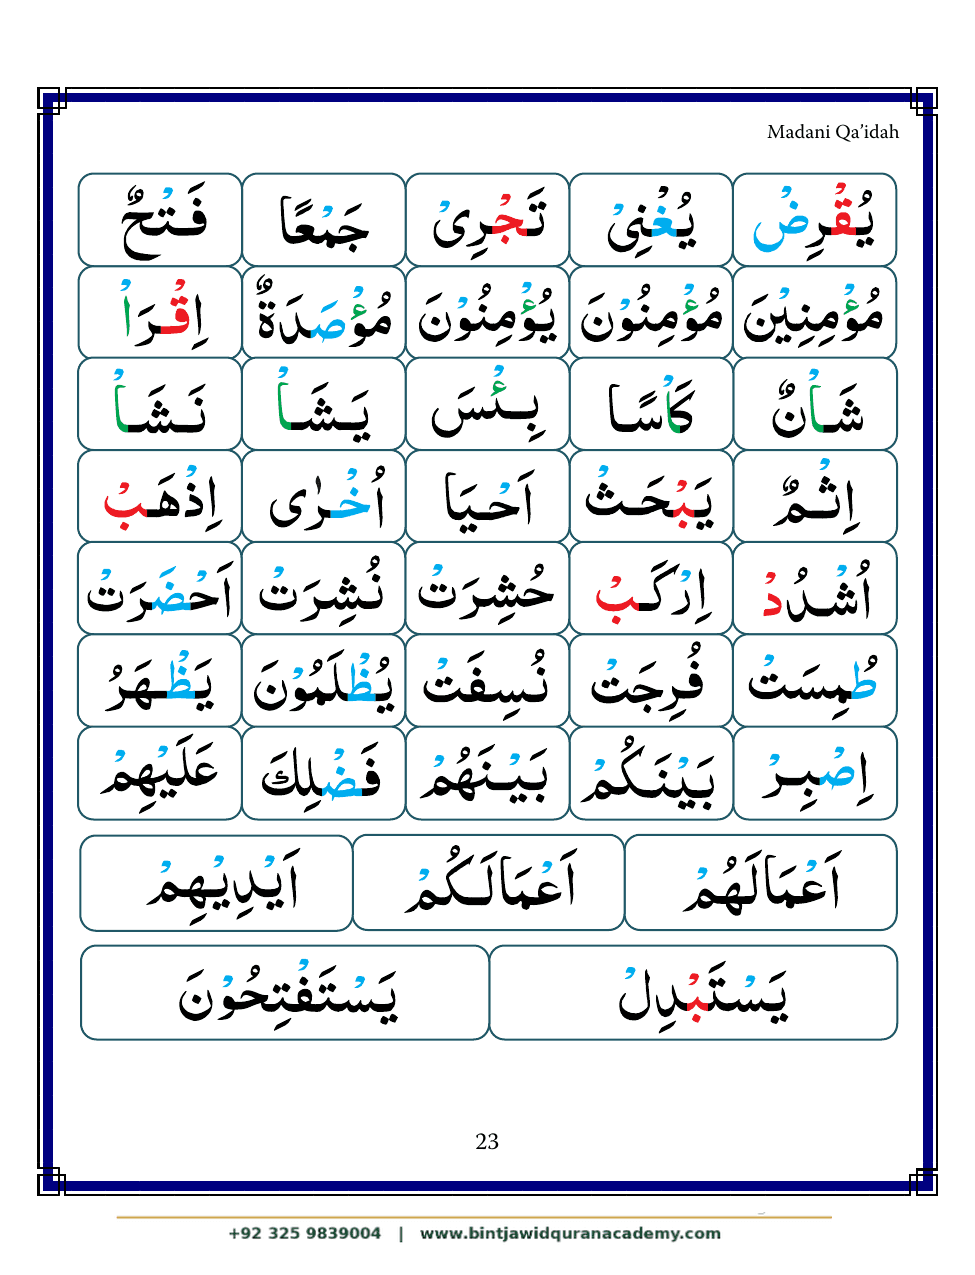 Madani Qa’idah
يُقْرِضْ يُغْنِىْ تَجْرِىْ جَمْعًا فَتْحٌ
مُؤْمِنِيْنَ مُؤْمِنُوْنَ يُؤْمِنُوْنَ مُؤْصَدَةٌ اِقْرَاْ
شَاْنٌ كَاْسًا بِئْسَ يَشَاْ نَشَاْ
اِثْمٌ يَبْحَثْ اَحْيَا اُخْرٰى اِذْهَبْ
اُشْدُدْ اِرْكَبْ حُشِرَتْ نُشِرَتْ اَحْضَرَتْ
طُمِسَتْ فُرِجَتْ نُسِفَتْ يُظْلَمُوْنَ يَظْهَرُ
اِصْبِرْ بَيْنَكُمْ بَيْنَهُمْ فَضْلِكَ عَلَيْهِمْ
اَعْمَالَهُمْ اَعْمَالَكُمْ اَيْدِيْهِمْ
يَسْتَبْدِلْ يَسْتَفْتِحُوْنَ
23
+92 325 9839004 | www.bintjawidquranacademy.com